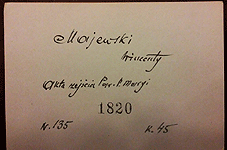 Majewski
Wincenty
Akta zejścia Par. P. Maryi
1820
N. 135 K. 45